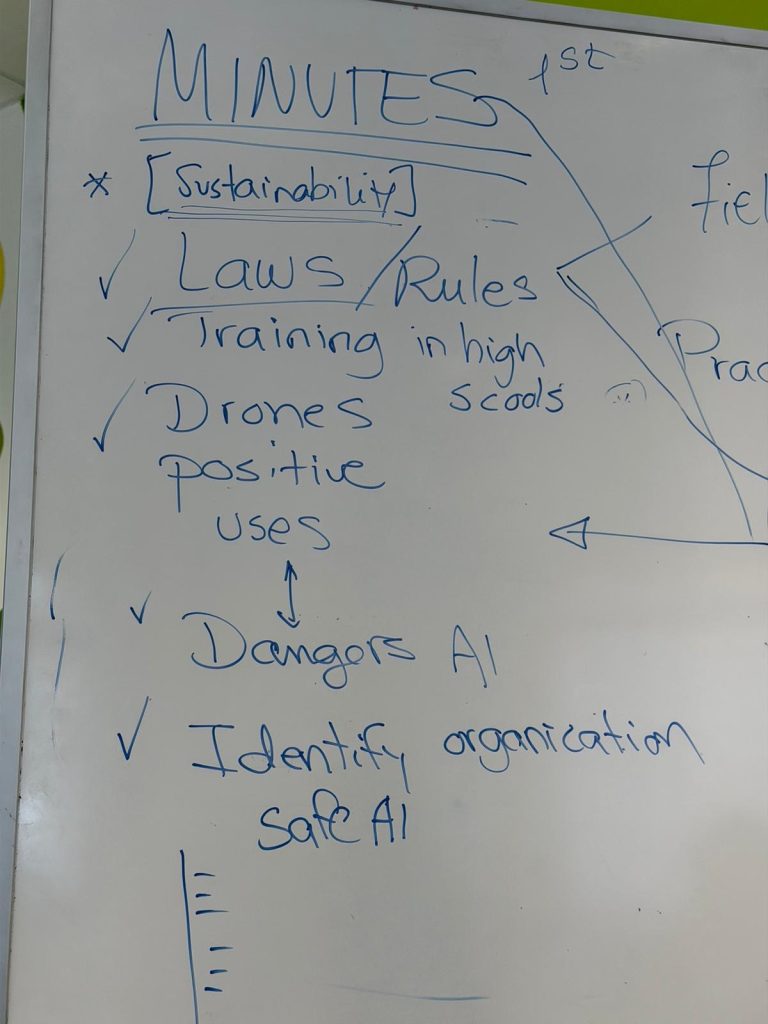 MINUTES 1st
* [Sustainability]
Laws/Rules
Training in high
scools
Drones
positive
uses
Dangers AI
Identify organication
safe AI